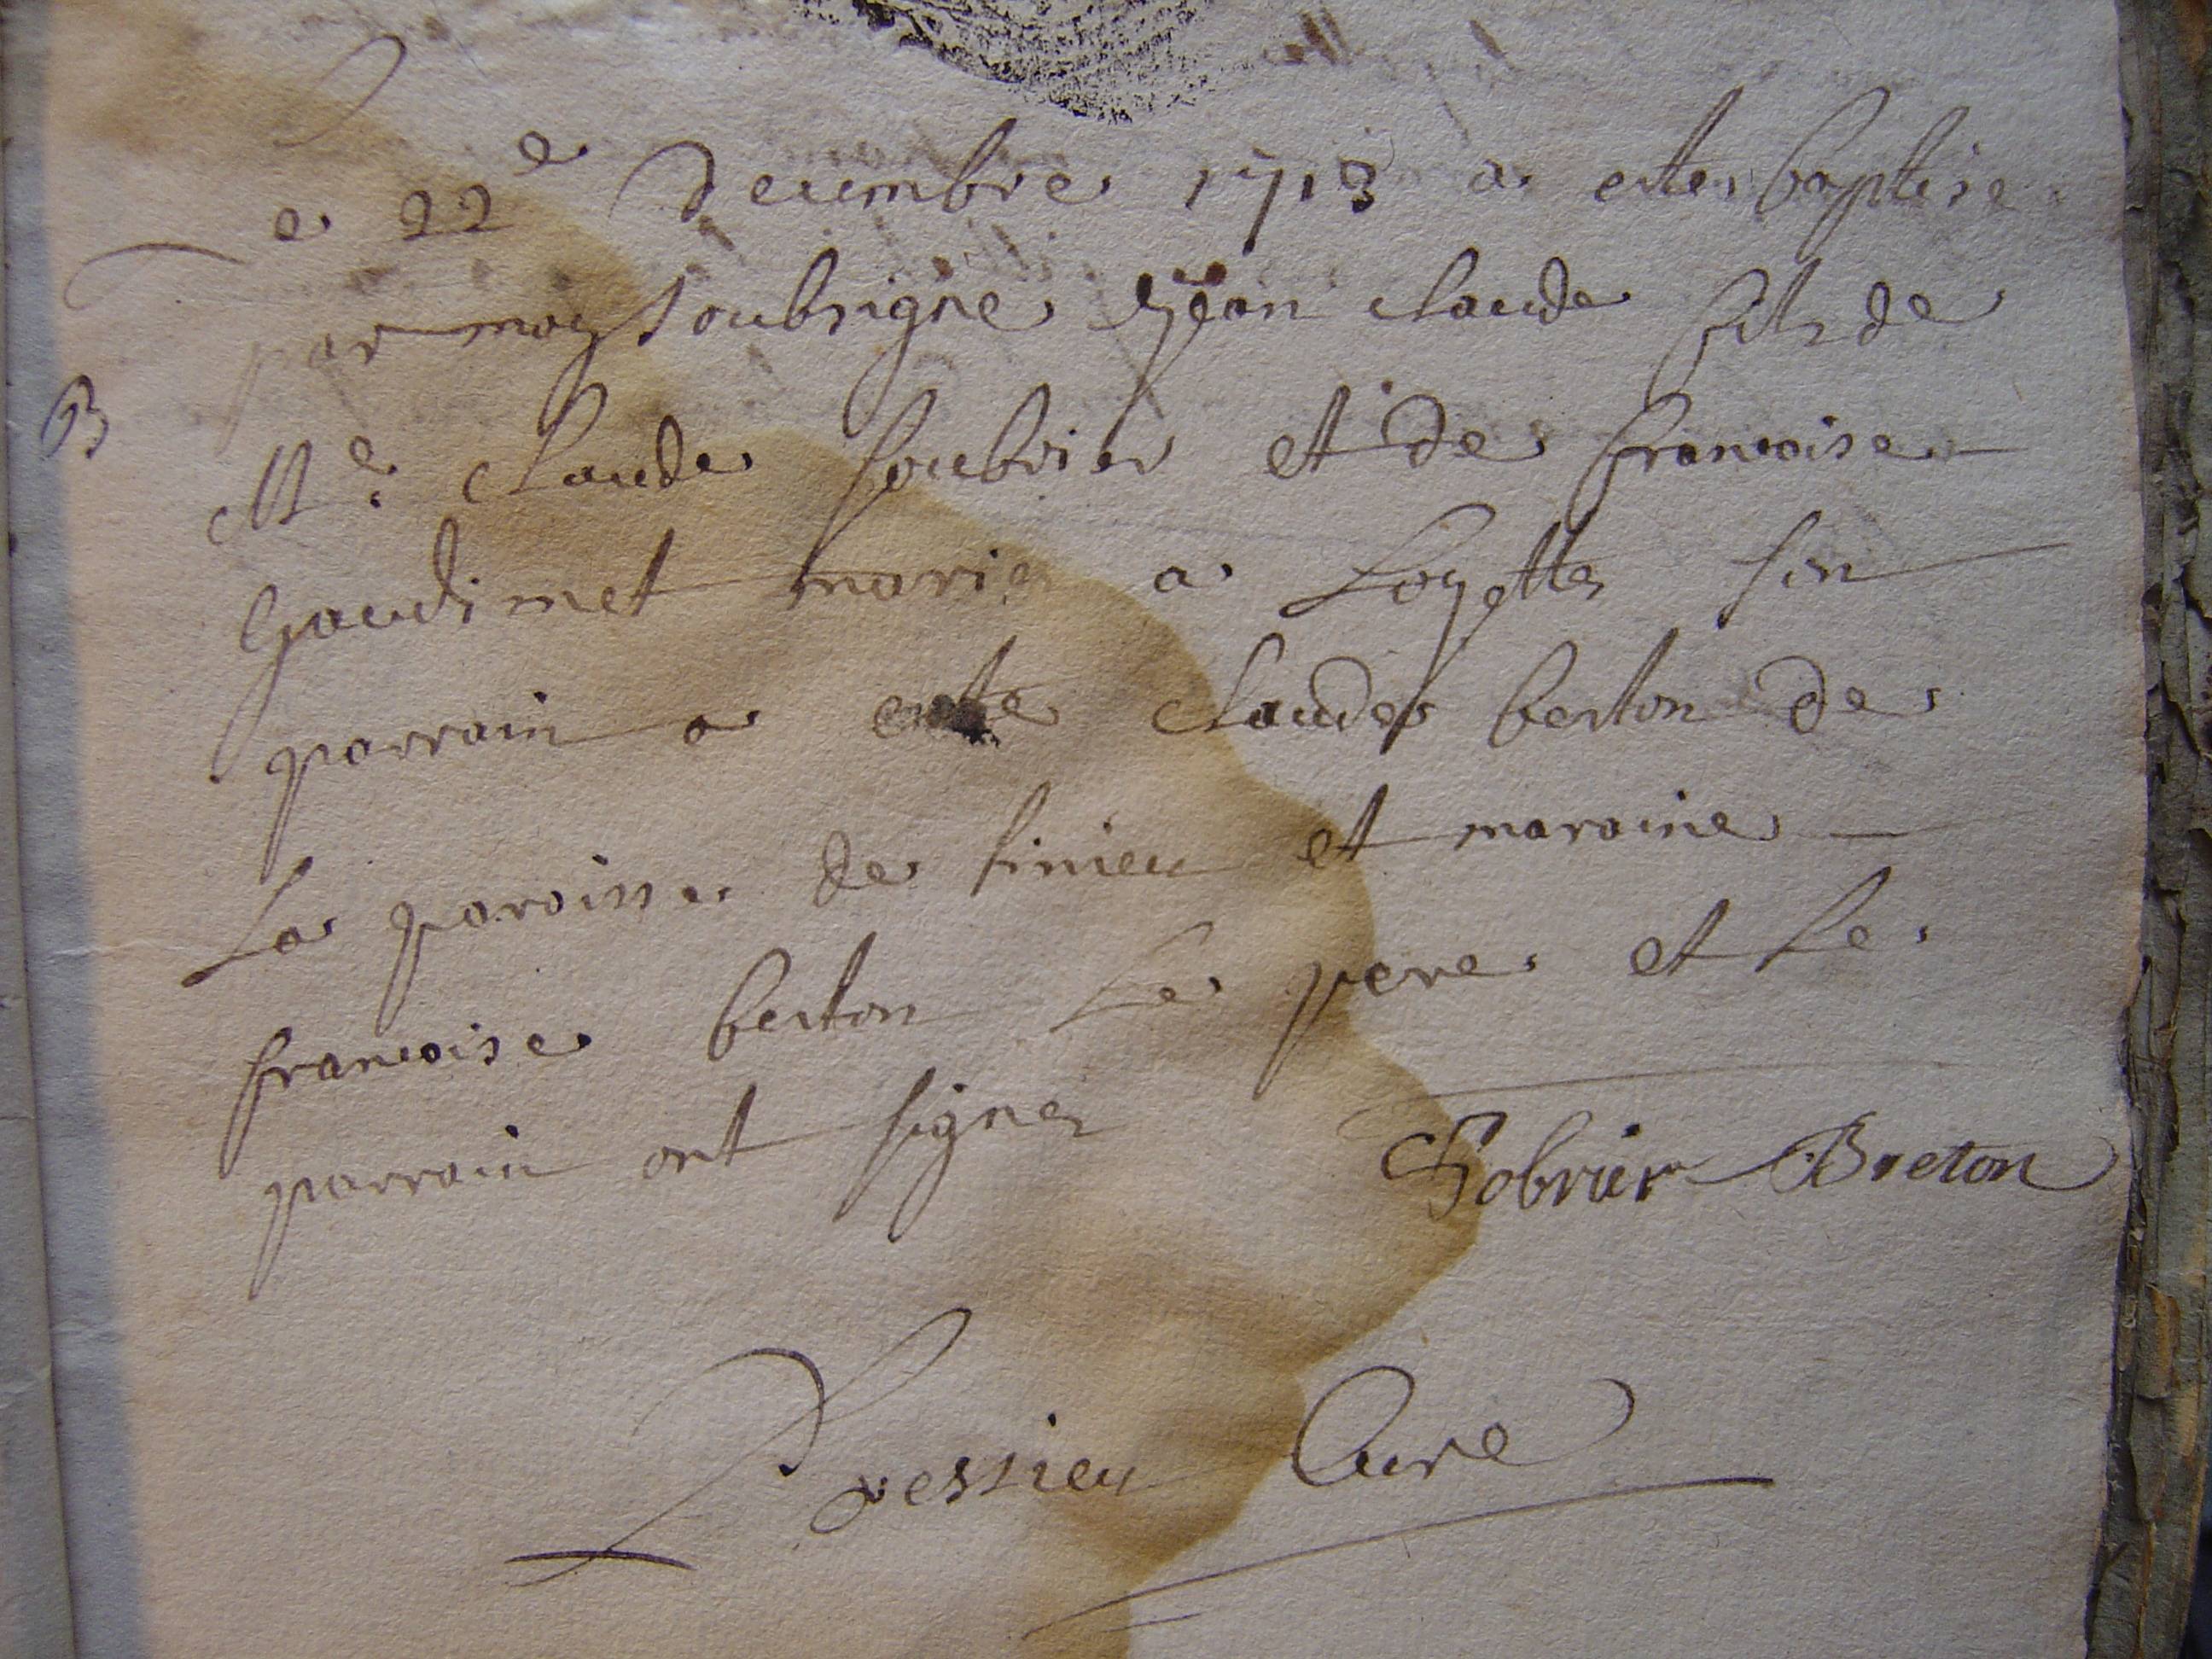 Le 22e decembre 1713 a este baptise
par moy soubsigne Jean claude fils de
B
Me claude soubrier et de francoise
Gaudimet marie a Loyette son
parrain a este claude berton de
La paroisse de sinieu et maraine
francoise berton Le pere et le
parrain ont signez
Sobrier Breton
Dressieu Cure